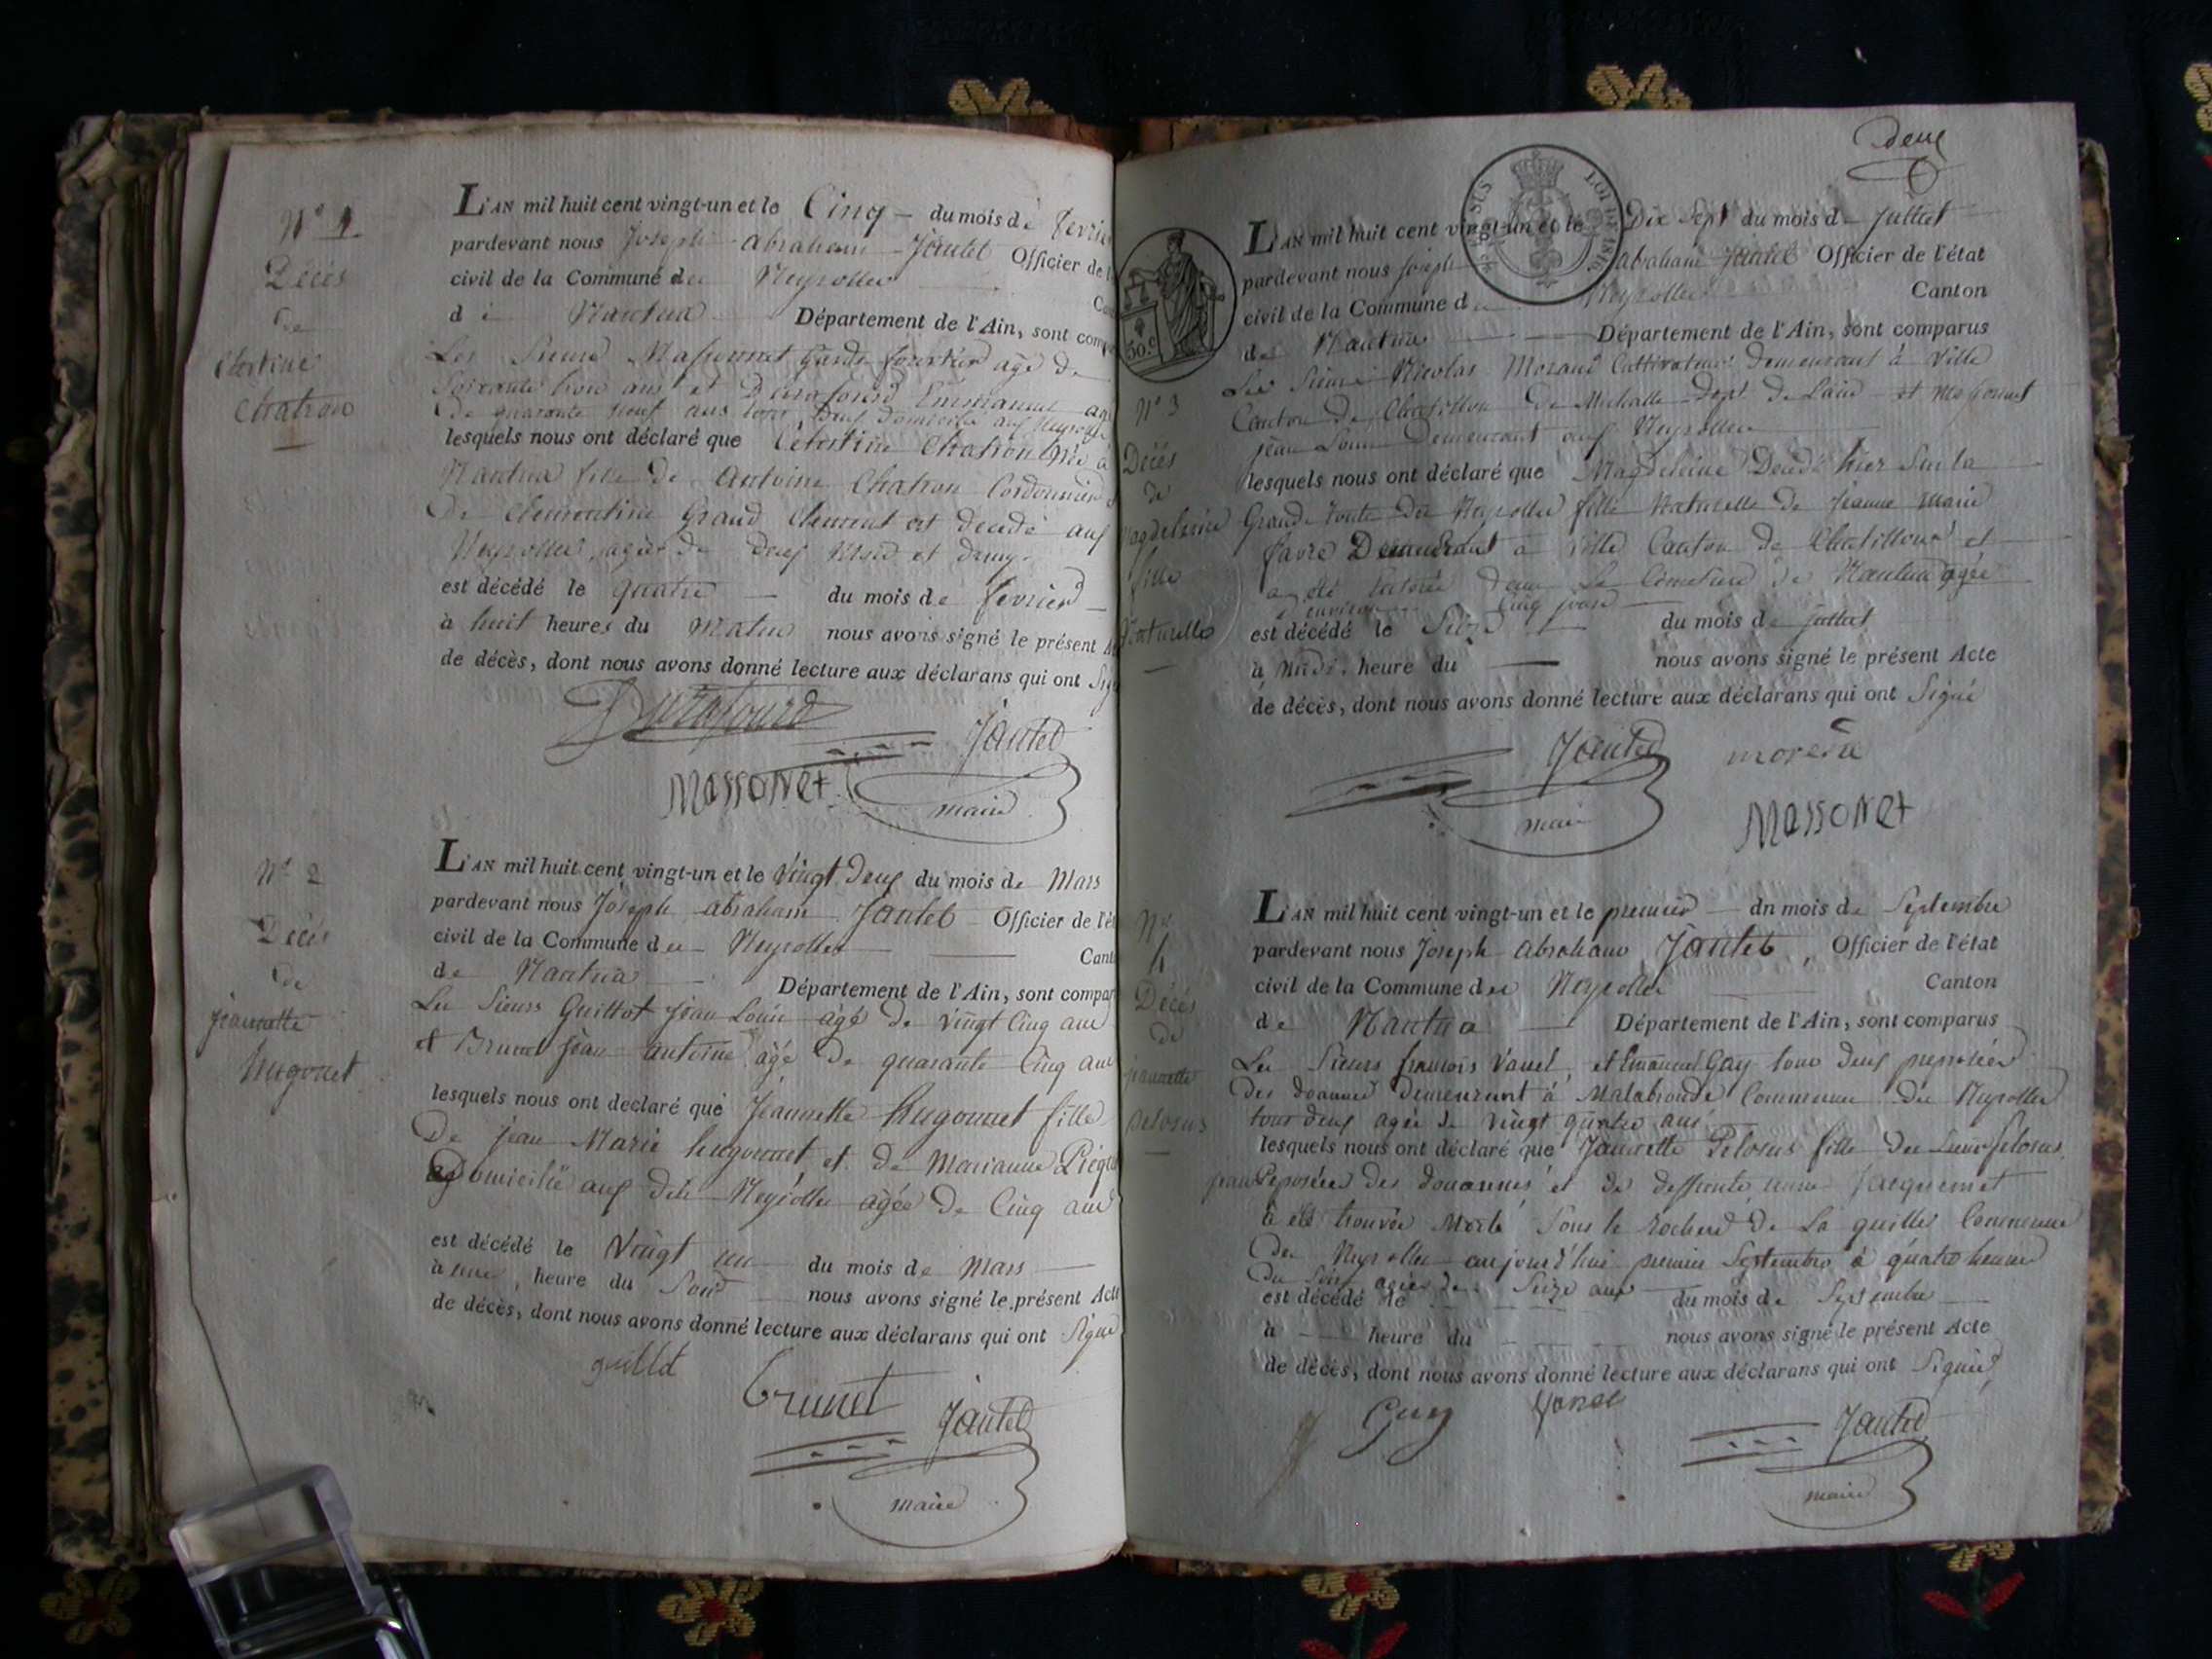 N° 1
Décès
de
Chatron
L'AN mil huit cent vingt-un et le Cinq du mois de fevrier
pardevant nous Joseph abraham Jantet Officier de l'
civil de la Commune des Neyrolles
de Nantua Département de l'Ain, sont comp
Les Sieurs Massonnet garde forestier agé de
Soixante trois ans et Dutrafourd Emmanuel agé
de quarante neuf ans tous deux domicilié aux Neyrolles
lesquels nous ont déclaré que Célestine Chatron née à
Nantua fille de antoine Chatron Cordonnier
De Clementine Grand Clement est decedé aux
Neyrolles, agée de deux Mois et demy
est décédé le quatre du mois de fevrier
à huit heures du Matin nous avons signé le présent A
de décès, dont nous avons donné lecture aux déclarans qui ont Sig
Jantet
Massonet
maire
N° 2
Décès
de
jeannette
hugonnet
L'AN mil huit cent vingt-un et le Vingt deux du mois de Mars
pardevant nous Joseph abraham Jantet Officier de l'ét
civil de la Commune des Neyrolles Cant
de Nantua Département de l'Ain, sont compar
Les Sieurs Guillot jean Louis agé de vingt Cinq ans
et Brunet jean antoine agé de quarante Cinq ans
lesquels nous ont declaré que Jeannette hugonnet fille
De jean Marie hugonnet et de Marianne
Domicilié aux dits Neyrolles agée de Cinq ans
est décédé le Vingt un du mois de Mars
à une heure du Soir nous avons signé le présent Acte
de décès, dont nous avons donné lecture aux déclarans qui ont Signé
guillot
brunet
Jantet
maire
deux
50.c
L'AN mil huit cent vingt-un et le Dix Sept du mois de Juillet
pardevant nous Joseph abraham Jantet Officier de l'état
civil de la Commune des Neyrolles Canton
de Nantua Département de l'Ain, sont comparus
Les Sieurs Nicolas Morand Cultivateur demeurant à Ville
Canton de Chatillon de Michaille dept. de Lain et Massonnet
jean Louis Demeurant aux Neyrolles
N° 3
Décès
de
Magdeleine
fille
Naturelle
lesquels nous ont déclaré que Magdeleine Decedé hier Sur la
Grande route des Neyrolles fille Naturelle de Jeanne Marie
favre Demeurant à Ville Canton de Chatillon et
a été dans le Cimetiere de Nantua agée
d'environ Cinq jours
est décédé le Seize du mois de juillet
à Midi heure du nous avons signé le présent Acte
de décès, dont nous avons donné lecture aux déclarans qui ont Signé
Jantet
maire
Massonet
L'AN mil huit cent vingt-un et le premier dn mois de Septembre
pardevant nous Joseph abraham Jantet, Officier de l'état
civil de la Commune des Neyrolles Canton
de Nantua Département de l'Ain, sont comparus
N°
4
Décès
de
jeannette
pelosus
Les Sieurs francois Vanel, et Emmanuel Gay tous deux preposées
des douannes demeurant à Malabronde Commune des Neyrolles
tous deux agée de Vingt quatre ans
lesquels nous ont déclaré que Jannette Pelosus fille du Sieur pelosus
jean Preposée des douannes et de deffunte Jacquemet
a été trouvée Morte Sous le rocher de La quille Commune
des Neyrolles aujourd'hui premier Septembre à quatre heures
du Soir agée de Seize ans
est décédé le du mois de Septembre
à heure du nous avons signé le présent Acte
de décès, dont nous avons donné lecture aux déclarans qui ont Signé
Gay
Vanel
Jantet
maire